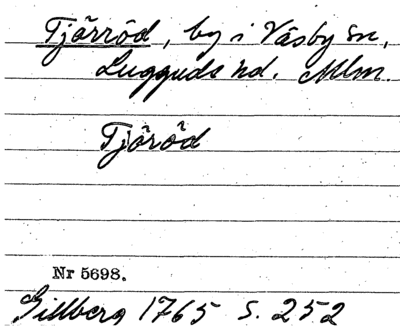 Tjärröd, by i Väsby sn,
Luggude hd. Mlm.
Tjäröd
Nr 5698.
Gillberg 1765 s. 252